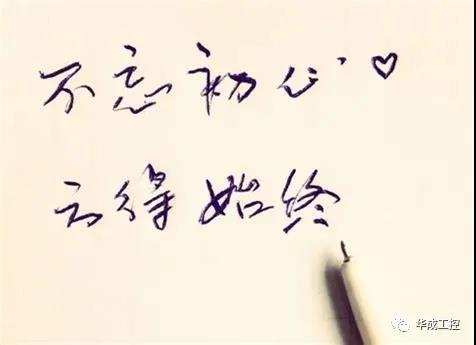 不忘初心
方得始终
华成工控